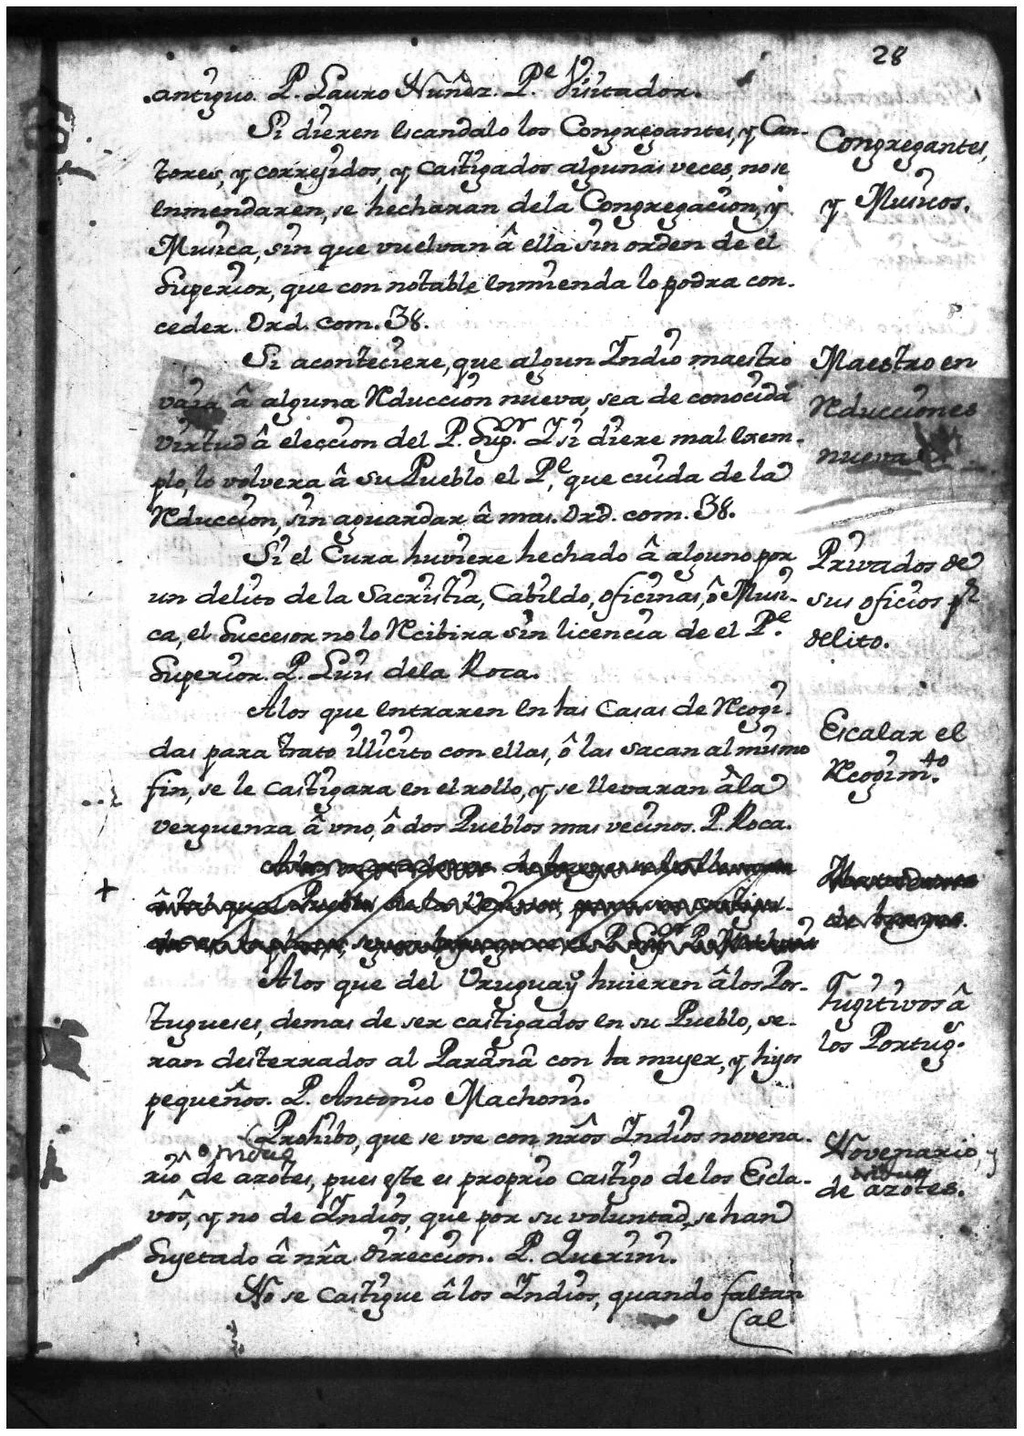 28
antiguo. P. Lauro Nuñez. Pe. Visitador.
Si dieren escandalo los Congregantes, y Can-
tores, y corregidos, y castigados algunas veces, no se
enmendaren, se hecharan dela Congregacion, y
Musica, sin que vuelvan â ella sin orden de el
Superior, que con notable enmienda lo podra con-
ceder. Ord. com. 38.
Congregantes,
y Musicos.
Si aconteciere, que algun Indio maestro
vaia â alguna Rduccion nueva, sea de conocida
virtud â eleccion del P. Supr. Y si diere mal exem-
plo, lo volvera â su Pueblo el Pe. que cuida de la
Rduccion, sin aguardar â mas. Ord. com. 38.
Maestro en
Rducciones
nueva
Si el Cura huviere hechado â alguno por
un delito de la Sacristia, Cabildo, oficinas, ô Musi-
ca, el Succesor no lo Rcibira sin licencia de el Pe.
Superior. P. Luis dela Roca.
Privados de
sus oficios pr
delito.
Alos que entraren en las Casas de Rcogi-
das para trato illicito con ellas, ô las sacan al mismo
fin, se le castigara en el rollo, y se llevaran âla
verguenza â vno, ô dos Pueblos mas vecinos. P. Roca.
Escalar el
Rcogimto.
+
de
Alos que del Uruguaÿ huieren âlos Por-
tugueses, demas de ser castigados en su Pueblo, se-
ran desterrados al Paranâ con la mujer, y hijos
pequeños. P. Antonio Machoni.
Fugitivos â
los Portug.
Prohibo, que se vse con nrôs Indios novena-
rio de azotes, pues este es proprio castigo de los Escla-
vos, y no de Indios, que por su voluntad, se han
Sujetado â nrâ direccion. P. Querini.
Novenario, y
de azotes.
No se castigue â los Indios, quando faltan
(al